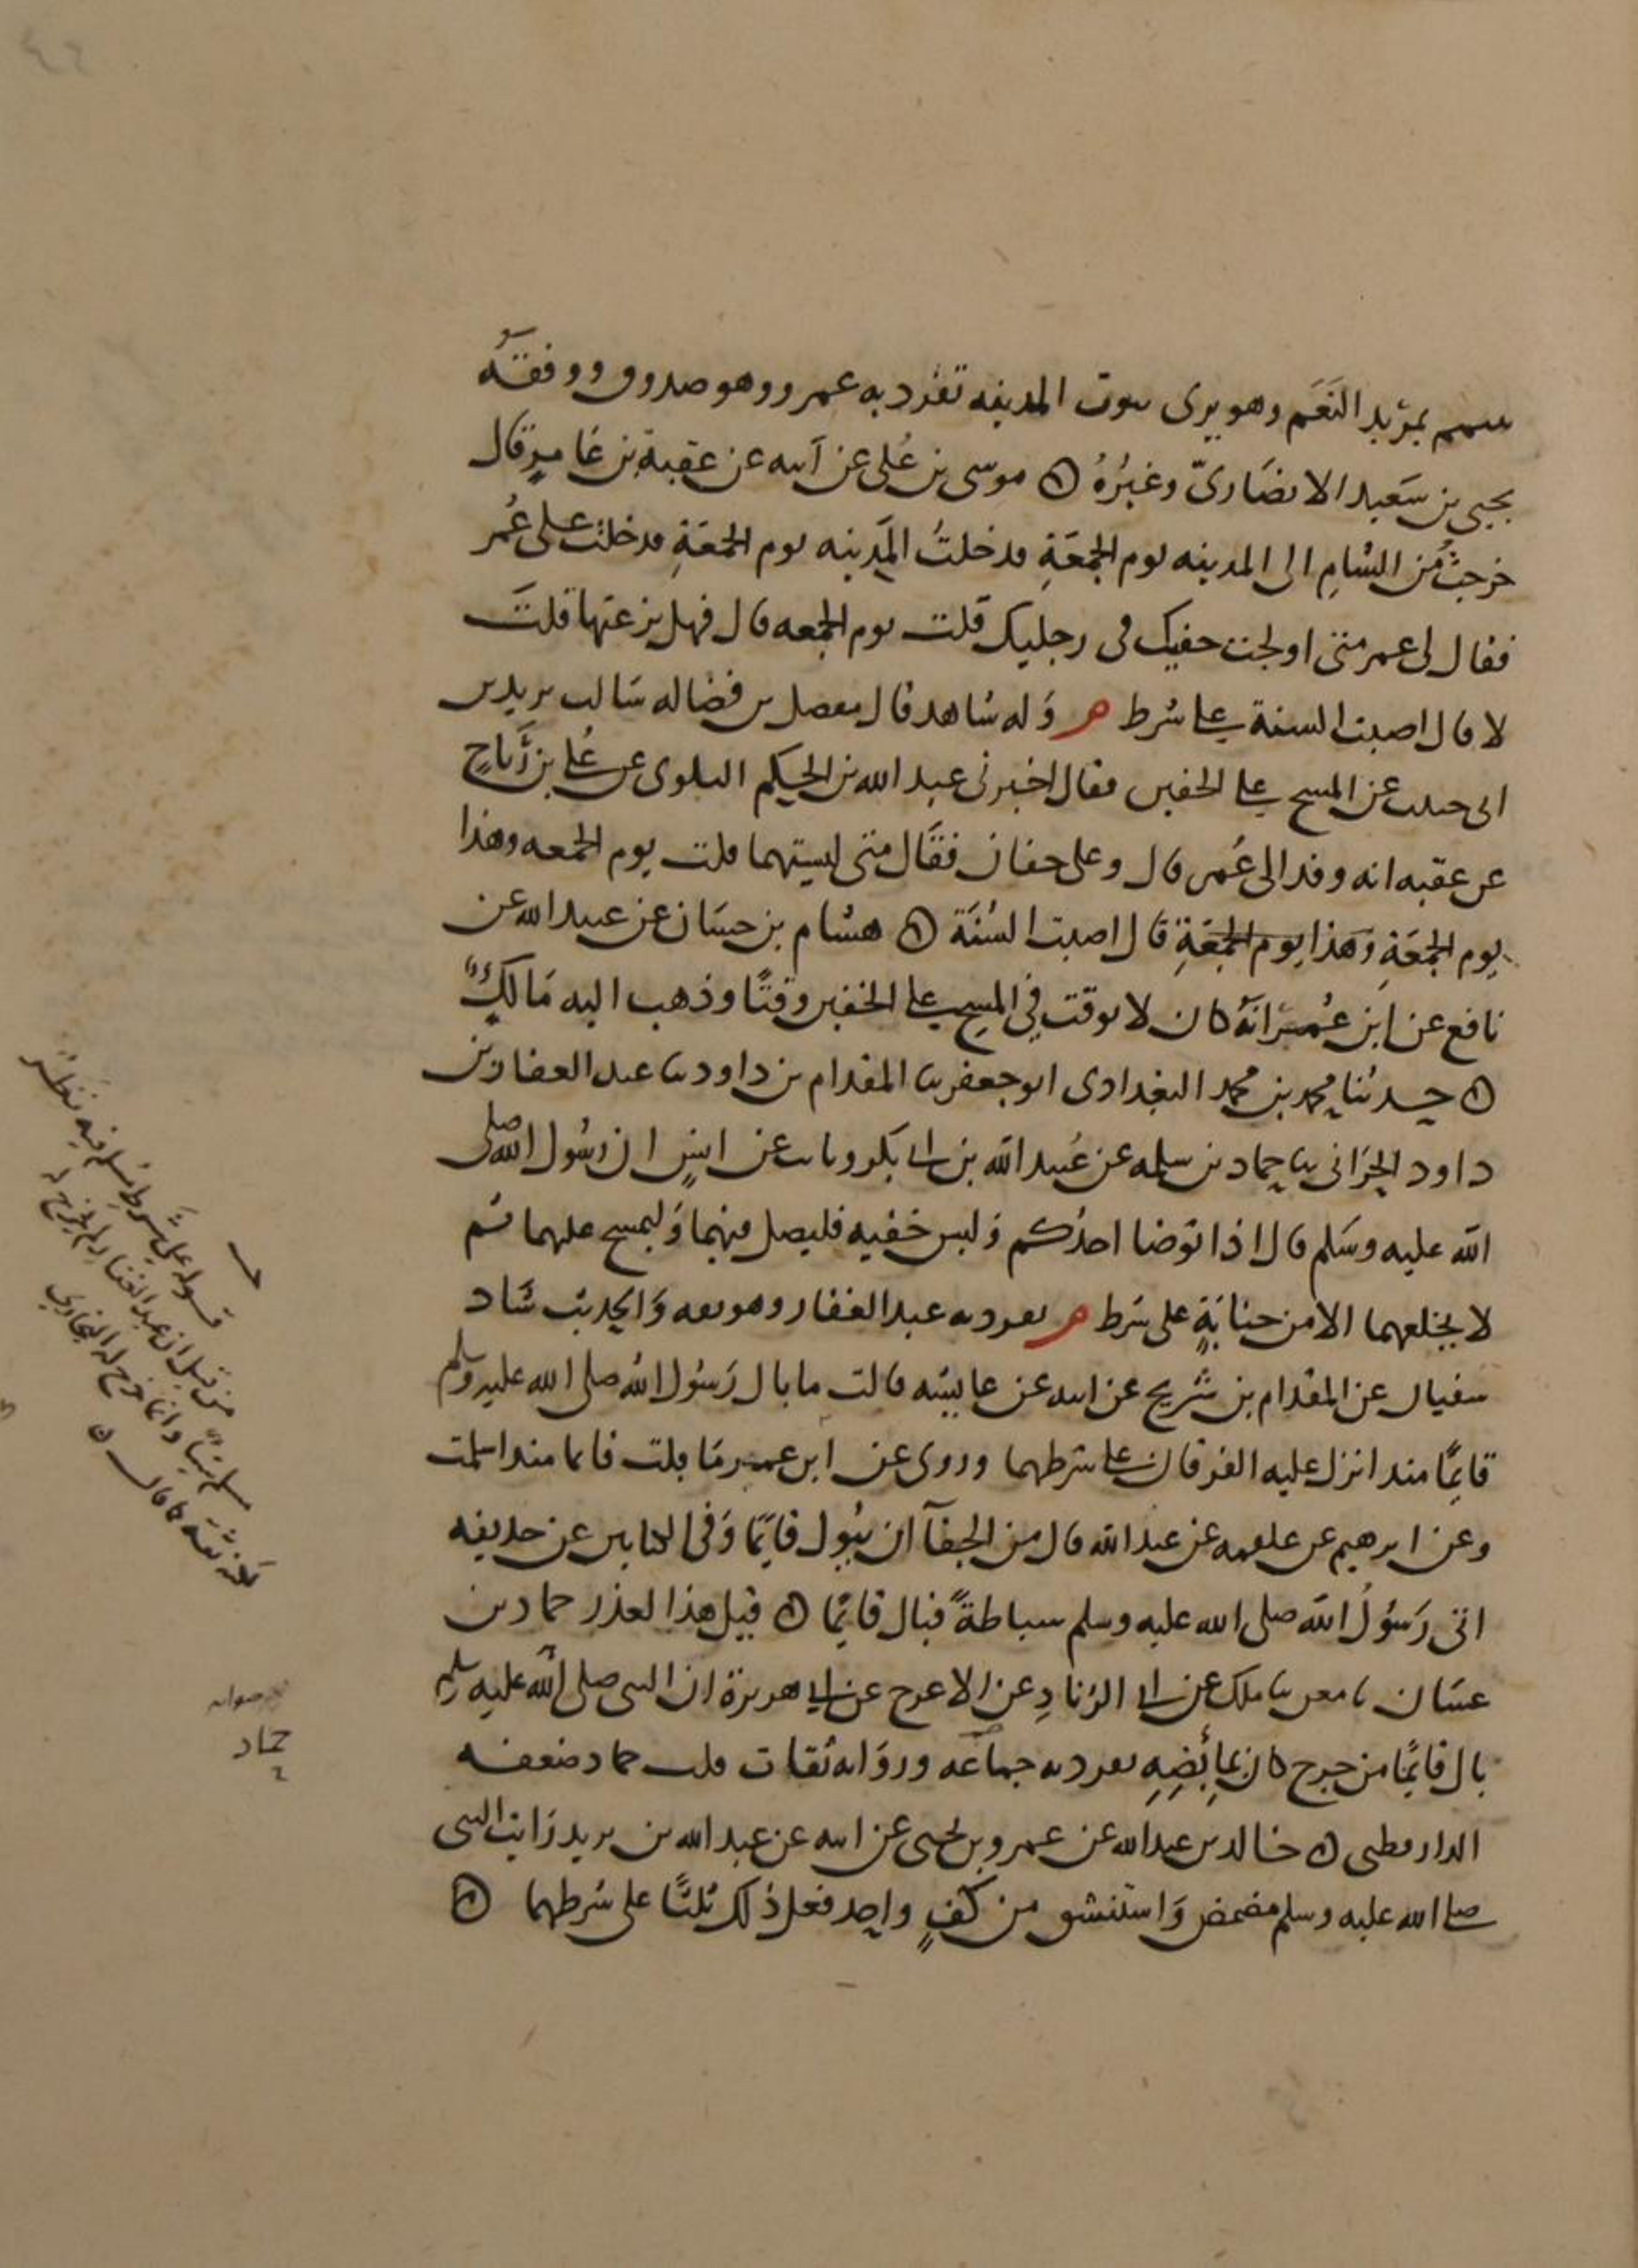 بمربد النَعَم وهو يرى بيوت المدينه تفرد به عمرو وهو صدوق ووقفَهُ
يحيى بن سَعيد الانصَاريّ وغيرُهُ ه موسى بن عُلى عن ابيه عن عقبة بن عَامرٍ قال
خرجتُ من الشامِ الى المدينه يوم الجمعَةِ فدخلتُ المَدينه يوم الجمعَةِ فدخلتُ على عُمر
فقال لى عمر متى اولجت خفيك فى رجليك قلت يوم الجمعه قال فهل نزعتها قلتَ
لا قال اصبت السنة على شرط م وَله شاهد قال مفضل بن فضاله سَالت يزيد بن
ابى حبيب عن المسح على الخفين فقال اخبرنى عبد الله بن الحكم البلوى عن عُلى بن رَباحٍ
عن عقبه انه وفد الى عُمر قال وعلى خفان فقَال متى لبستهما قلت يوم الجمعه وهذا
يوم الجمعَةِ وَهَذا يوم الجمعَةِ قَال اصبت السُنَة ه هشام بن حسَان عن عبيد الله عن
نافع عن ابن عُمر انهُ كان لا يوقت في المسح على الخفين وقتًا وذهب اليه مَالكٌ
ه حدثنا محمد بن محمد البغدادى ابو جعفر ثنا المقدام بن داود ثنا عبد الغفار بن
داود الحرّانى ثنا حماد بن سلمه عن عُبيد الله بن ابى بكر وثابت عن انسٍ ان رسُول الله صلى
الله عليه وسَلم قال اذا توضا احدُكم وَلبس خفيه فليصل فيهما وَليمسح عليهما ثم
لا يخلعهما الا من جنابَةٍ على شرط م تفرد به عبد الغفار وهو ثقه وَالحديث شَاد
سفيان عن المقدام بن شُريح عن ابيه عن عايشه قالت ما بال رَسُول الله صلى الله عليه وسلم
قايمًا منذ انزل عليه الفرقان على شرطهما وروى عن ابن عمر مَا بلت قايما منذ اسلمت
وعن ابرهيم عن علقمه عن عبد الله قال من الجفآ ان يبُول قايمًا وَفى الكتابين عن حذيفه
اتى رَسوُل الله صلى الله عليه وسلم سباطةً فبال قايمًا ه قيل هذا لعذر حماد بن
غسَان ثنا معن ثنا ملك عن ابى الزناد عن الاعرج عن ابى هريرة ان النبى صلى الله عليه وسلم
بال قايمًا من جرح كان بمأبضِهِ تفرد به جماعه وروَاته ثقات قلت حماد ضعفه
الدارقطنى ه خالد بن عبد الله عن عمرو بن يحيى عن ابيه عن عبد الله بن يزيد رَايت النبى
صلى الله عليه وسلم مضمض وَاستنشق من كفٍ واحد فعل ذلك ثلثًا على شرطهما ه
قوله على شرط مسلم فيه نظر
من قبل ان عبد الغفار لم يخرج له
مسلم شيا وانما خرج له البخاري
لكنه ثقة كما قال ه
صوابه
حماد